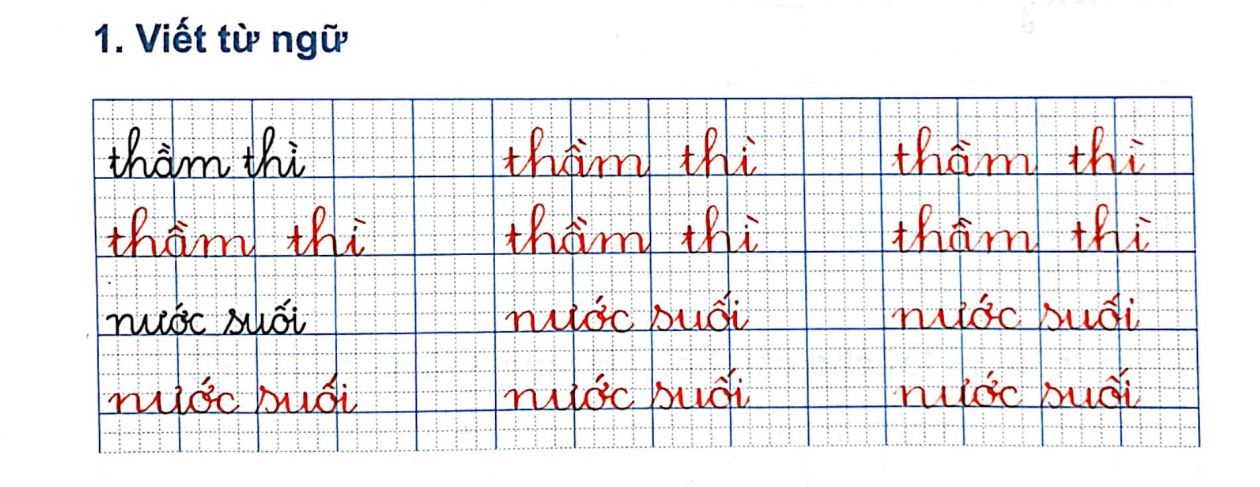 1. Viết từ ngữ
thầm thì thầm thì thầm thì
thầm thì thầm thì thầm thì
nước suối nước suối nước suối
nước suối nước suối nước suối